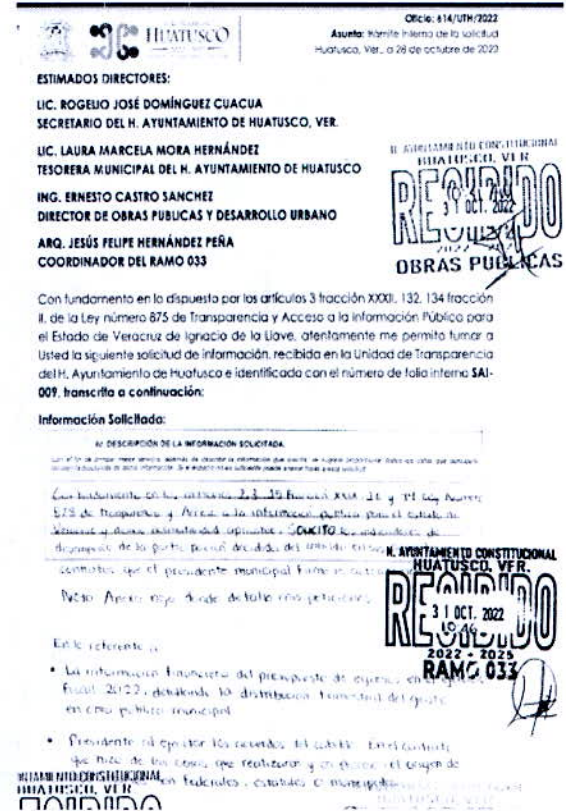 Oficio: 614/UTH/2022
Asunto: Trámite interno de la solicitud
Huatusco, Ver., a 28 de octubre de 2022
HUATUSCO
ESTIMADOS DIRECTORES:
LIC. ROGELIO JOSÉ DOMÍNGUEZ CUACUA
SECRETARIO DEL H. AYUNTAMIENTO DE HUATUSCO, VER.
LIC. LAURA MARCELA MORA HERNÁNDEZ
TESORERA MUNICIPAL DEL H. AYUNTAMIENTO DE HUATUSCO
ING. ERNESTO CASTRO SANCHEZ
DIRECTOR DE OBRAS PUBLICAS Y DESARROLLO URBANO
ARQ. JESÚS FELIPE HERNÁNDEZ PEÑA
COORDINADOR DEL RAMO 033
H. AYUNTAMIENTO CONSTITUCIONAL
HUATUSCO, VER
RECIBIDO
31 OCT. 2022
OBRAS PUBLICAS
Con fundamento en lo dispuesto por los artículos 3 fracción XXXII, 132, 134 fracción
II, de la Ley número 875 de Transparencia y Acceso a la Información Pública para
el Estado de Veracruz de Ignacio de la Llave, atentamente me permito turnar a
Usted la siguiente solicitud de información, recibida en la Unidad de Transparencia
del H. Ayuntamiento de Huatusco e identificada con el número de folio interno SAI-
009, transcrita a continuación:
Información Solicitada:
IV. DESCRIPCIÓN DE LA INFORMACIÓN SOLICITADA.
Con fundamento en los artículos 2, 3, 15 Ley Número
875 de Transparencia y Acceso a la información pública para el estado de
Veracruz y demas SOLICITO los indicadores de
contratos que el presidente municipal firma
Nota: Anexo hoja donde detallo mis peticiones
H. AYUNTAMIENTO CONSTITUCIONAL
HUATUSCO, VER.
RECIBIDO
31 OCT. 2022
10:46
2022 - 2025
RAMO 033
En lo referente a
• La información financiera del presupuesto de egresos en el
fiscal 2022, detallando la distribución trimestral del gasto
en obra pública municipal
• Presidente al ejecutar los acuerdos del cabildo. En el contrato
que hizo de las obras que realizaron y el origen de
en federales, estatales o municipales
HUATUSCO, VER
RECIBIDO